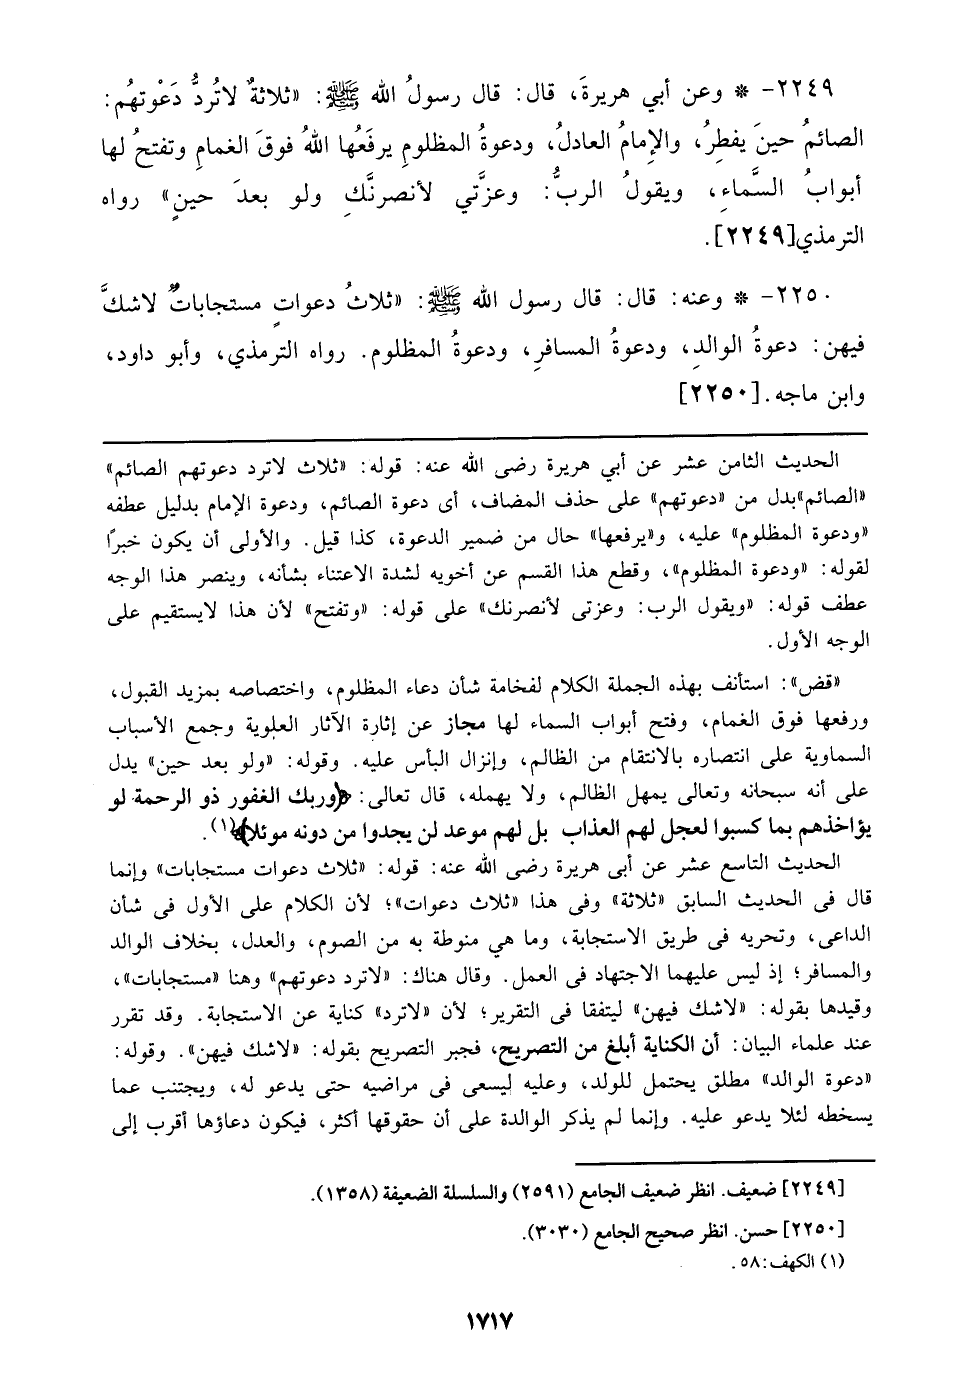 ٢٢٤٩- * وعن أبي هريرةَ، قال: قال رسولُ الله ﷺ: «ثلاثةٌ لاتُردُّ دَعْوتهُم:
الصائمُ حينَ يفطِرُ، والإمامُ العادلُ، ودعوةُ المظلومِ يرفَعُها اللهُ فوقَ الغمامِ وتفتحُ لها
أبوابُ السَّماءِ، ويقولُ الربُّ: وعزَّتي لأنصرنَّكِ ولو بعدَ حينٍ» رواه
الترمذي[٢٢٤٩].
٢٢٥٠- * وعنه: قال: قال رسول الله ﷺ: «ثلاثُ دعواتٍ مستجاباتٌ لاشكَّ
فيهن: دعوةُ الوالدِ، ودعوةُ المسافرِ، ودعوةُ المظلوم. رواه الترمذي، وأبو داود،
وابن ماجه.[٢٢٥٠]
الحديث الثامن عشر عن أبي هريرة رضى الله عنه: قوله: «ثلاث لاترد دعوتهم الصائم»
«الصائم»بدل من «دعوتهم» على حذف المضاف، أى دعوة الصائم، ودعوة الإمام بدليل عطفه
«ودعوة المظلوم» عليه، و«يرفعها» حال من ضمير الدعوة، كذا قيل. والأولى أن يكون خبرًا
لقوله: «ودعوة المظلوم»، وقطع هذا القسم عن أخويه لشدة الاعتناء بشأنه، وينصر هذا الوجه
عطف قوله: «ويقول الرب: وعزتى لأنصرنك» على قوله: «وتفتح» لأن هذا لايستقيم على
الوجه الأول.
«قض»: استأنف بهذه الجملة الكلام لفخامة شأن دعاء المظلوم، واختصاصه بمزيد القبول،
ورفعها فوق الغمام، وفتح أبواب السماء لها مجاز عن إثارة الآثار العلوية وجمع الأسباب
السماوية على انتصاره بالانتقام من الظالم، وإنزال البأس عليه. وقوله: «ولو بعد حين» يدل
على أنه سبحانه وتعالى يمهل الظالم، ولا يهمله، قال تعالى: ﴿وربك الغفور ذو الرحمة لو
يؤاخذهم بما كسبوا لعجل لهم العذاب بل لهم موعد لن يجدوا من دونه موئلا﴾(١).
الحديث التاسع عشر عن أبى هريرة رضى الله عنه: قوله: «ثلاث دعوات مستجابات» وإنما
قال فى الحديث السابق «ثلاثة» وفى هذا «ثلاث دعوات»؛ لأن الكلام على الأول فى شأن
الداعى، وتحريه فى طريق الاستجابة، وما هي منوطة به من الصوم، والعدل، بخلاف الوالد
والمسافر؛ إذ ليس عليهما الاجتهاد فى العمل. وقال هناك: «لاترد دعوتهم» وهنا «مستجابات»،
وقيدها بقوله: «لاشك فيهن» ليتفقا فى التقرير؛ لأن «لاترد» كناية عن الاستجابة. وقد تقرر
عند علماء البيان: أن الكناية أبلغ من التصريح، فجبر التصريح بقوله: «لاشك فيهن». وقوله:
«دعوة الوالد» مطلق يحتمل للولد، وعليه ليسعى فى مراضيه حتى يدعو له، ويجتنب عما
يسخطه لئلا يدعو عليه. وإنما لم يذكر الوالدة على أن حقوقها أكثر، فيكون دعاؤها أقرب إلى
[٢٢٤٩] ضعيف. انظر ضعيف الجامع (٢٥٩١) والسلسلة الضعيفة (١٣٥٨).
[٢٢٥٠] حسن. انظر صحيح الجامع (٣٠٣٠).
(١) الكهف: ٥٨.
١٧١٧